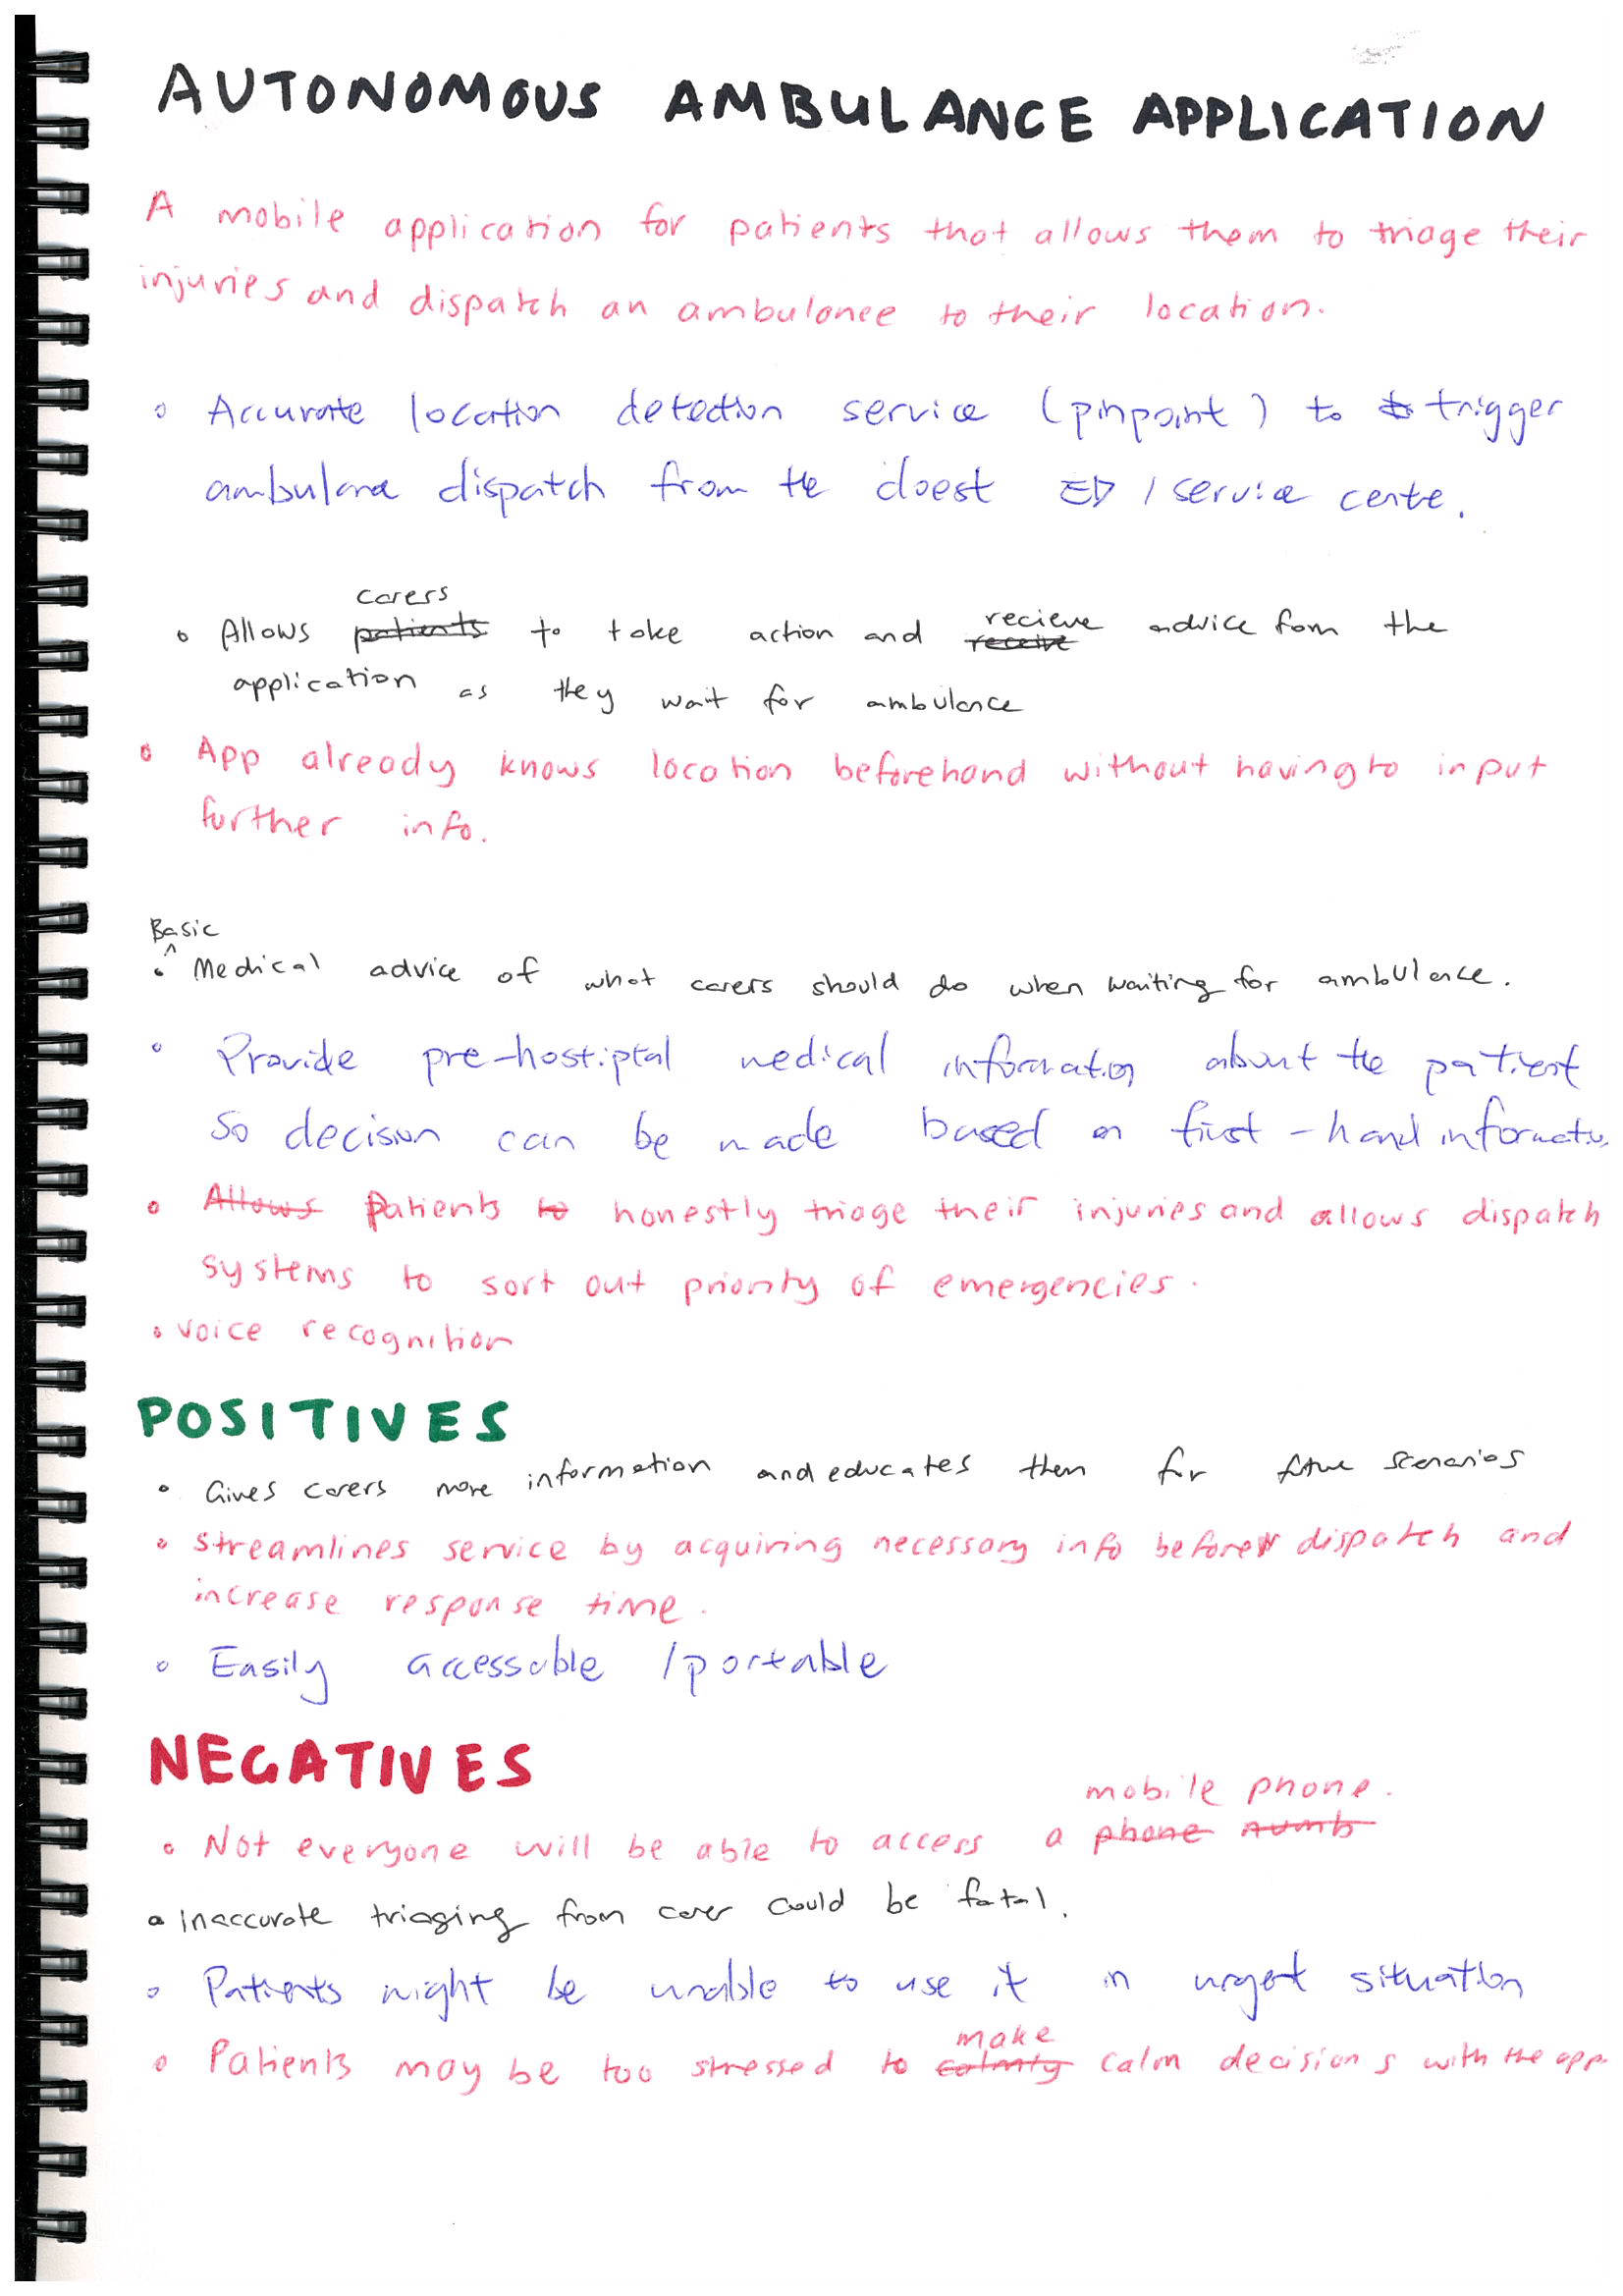 AUTONOMOUS AMBULANCE APPLICATION
A mobile application for patients that allows them to triage their
injuries and dispatch an ambulance to their location.
• Accurate location detection service (pinpoint) to to trigger
ambulance dispatch from the closest ED / service cente.
carers
• Allows patients to take action and recieve receive advice from the
application as they wait for ambulance
• App already knows location beforehand without having to input
further info.
Basic
• ^ Medical advice of what carers should do when waiting for ambulance.
• Provide pre-hostiptal medical information about the patient
so decision can be made based on first-hand informatio
• Allows Patients to honestly triage their injuries and allows dispatch
systems to sort out priority of emergencies.
• voice recognition
POSITIVES
• Gives carers more information and educates them for future scenarios
• streamlines service by acquiring necessary info before dispatch and
increase response time.
• Easily accessable / portable
NEGATIVES
mobile phone.
• Not everyone will be able to access a phone numb
• Inaccurate triaging from carer could be fatal.
• Patients might be unable to use it in urgent situation
make
• Patients may be too stressed to calmly calm decisions with the app.